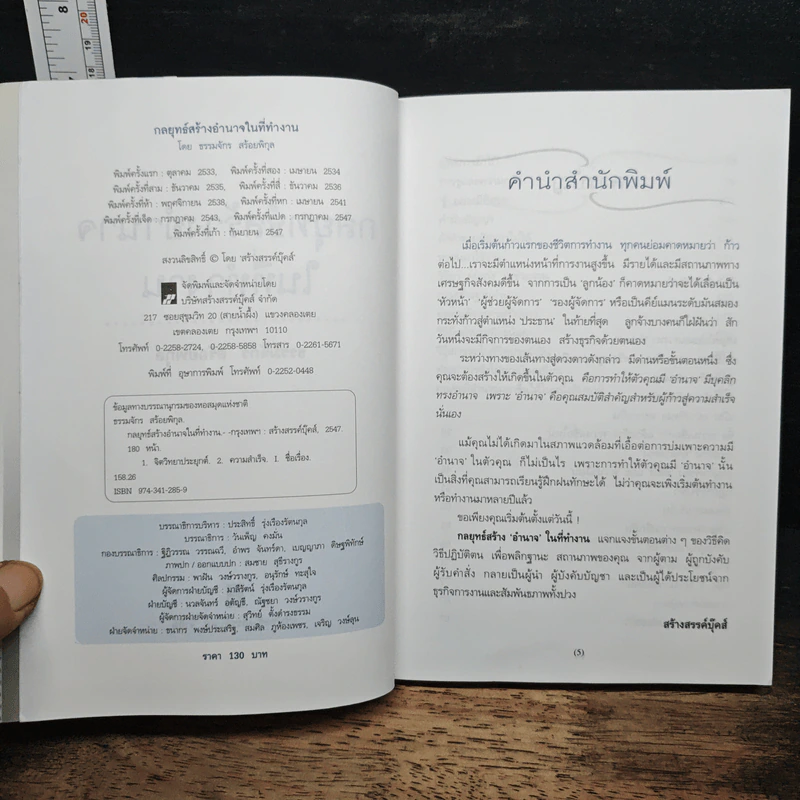 8
20
19
18
กลยุทธ์สร้างอำนาจในที่ทำงาน
โดย ธรรมจักร สร้อยพิกุล
พิมพ์ครั้งแรก : ตุลาคม 2533, พิมพ์ครั้งที่สอง : เมษายน 2534
พิมพ์ครั้งที่สาม : ธันวาคม 2535, พิมพ์ครั้งที่สี่ : ธันวาคม 2536
พิมพ์ครั้งที่ห้า : พฤศจิกายน 2538, พิมพ์ครั้งที่หก : เมษายน 2541
พิมพ์ครั้งที่เจ็ด : กรกฎาคม 2543, พิมพ์ครั้งที่แปด : กรกฎาคม 2547
พิมพ์ครั้งที่เก้า : กันยายน 2547
สงวนลิขสิทธิ์ © โดย 'สร้างสรรค์บุ๊คส์'
จัดพิมพ์และจัดจำหน่ายโดย
บริษัทสร้างสรรค์บุ๊คส์ จำกัด
217 ซอยสุขุมวิท 20 (สายน้ำผึ้ง) แขวงคลองเตย
เขตคลองเตย กรุงเทพฯ 10110
โทรศัพท์ 0-2258-2724, 0-2258-5858 โทรสาร 0-2261-5671
พิมพ์ที่ อุษาการพิมพ์ โทรศัพท์ 0-2252-0448
ข้อมูลทางบรรณานุกรมของหอสมุดแห่งชาติ
ธรรมจักร สร้อยพิกุล.
กลยุทธ์สร้างอำนาจในที่ทำงาน.- -กรุงเทพฯ : สร้างสรรค์บุ๊คส์, 2547.
180 หน้า.
1. จิตวิทยาประยุกต์. 2. ความสำเร็จ. I. ชื่อเรื่อง.
158.26
ISBN 974-341-285-9
บรรณาธิการบริหาร : ประสิทธิ์ รุ่งเรืองรัตนกุล
บรรณาธิการ : วันเพ็ญ คงมั่น
กองบรรณาธิการ : ฐิฏิวรรณ วรรณฉวี, อำพร จันทร์ดา, เบญญาภา ดิษฐพิทักษ์
ภาพปก / ออกแบบปก : สมชาย สุธีรางกูร
ศิลปกรรม : พาฝัน วงษ์วรางกูร, อนุรักษ์ ทะสุใจ
ผู้จัดการฝ่ายบัญชี : มาลีรัตน์ รุ่งเรืองรัตนกุล
ฝ่ายบัญชี : นวลจันทร์ อตัญชี, ณัฐชยา วงษ์วรางกูร
ผู้จัดการฝ่ายจัดจำหน่าย : สุวิทย์ ตั้งดำรงธรรม
ฝ่ายจัดจำหน่าย : ธนากร พงษ์ประเสริฐ, สมศิล ภูห้องเพชร, เจริญ วงษ์ลุน
ราคา 130 บาท
คำนำสำนักพิมพ์
เมื่อเริ่มต้นก้าวแรกของชีวิตการทำงาน ทุกคนย่อมคาดหมายว่า ก้าว
ต่อไป...เราจะมีตำแหน่งหน้าที่การงานสูงขึ้น มีรายได้และมีสถานภาพทาง
เศรษฐกิจสังคมดีขึ้น จากการเป็น 'ลูกน้อง' ก็คาดหมายว่าจะได้เลื่อนเป็น
'หัวหน้า' 'ผู้ช่วยผู้จัดการ' 'รองผู้จัดการ' หรือเป็นคีย์แมนระดับมันสมอง
กระทั่งก้าวสู่ตำแหน่ง 'ประธาน' ในท้ายที่สุด ลูกจ้างบางคนก็ใฝ่ฝันว่า สัก
วันหนึ่งจะมีกิจการของตนเอง สร้างธุรกิจด้วยตนเอง
ระหว่างทางของเส้นทางสู่ดวงดาวดังกล่าว มีด่านหรือขั้นตอนหนึ่ง ซึ่ง
คุณจะต้องสร้างให้เกิดขึ้นในตัวคุณ คือการทำให้ตัวคุณมี 'อำนาจ' มีบุคลิก
ทรงอำนาจ เพราะ 'อำนาจ' คือคุณสมบัติสำคัญสำหรับผู้ก้าวสู่ความสำเร็จ
นั่นเอง
แม้คุณไม่ได้เกิดมาในสภาพแวดล้อมที่เอื้อต่อการบ่มเพาะความมี
'อำนาจ' ในตัวคุณ ก็ไม่เป็นไร เพราะการทำให้ตัวคุณมี 'อำนาจ' นั้น
เป็นสิ่งที่คุณสามารถเรียนรู้ฝึกฝนทักษะได้ ไม่ว่าคุณจะเพิ่งเริ่มต้นทำงาน
หรือทำงานมาหลายปีแล้ว
ขอเพียงคุณเริ่มต้นตั้งแต่วันนี้ !
กลยุทธ์สร้าง 'อำนาจ' ในที่ทำงาน แจกแจงขั้นตอนต่าง ๆ ของวิธีคิด
วิธีปฏิบัติตน เพื่อพลิกฐานะ สถานภาพของคุณ จากผู้ตาม ผู้ถูกบังคับ
ผู้รับคำสั่ง กลายเป็นผู้นำ ผู้บังคับบัญชา และเป็นผู้ได้ประโยชน์จาก
ธุรกิจการงานและสัมพันธภาพทั้งปวง
สร้างสรรค์บุ๊คส์
(5)